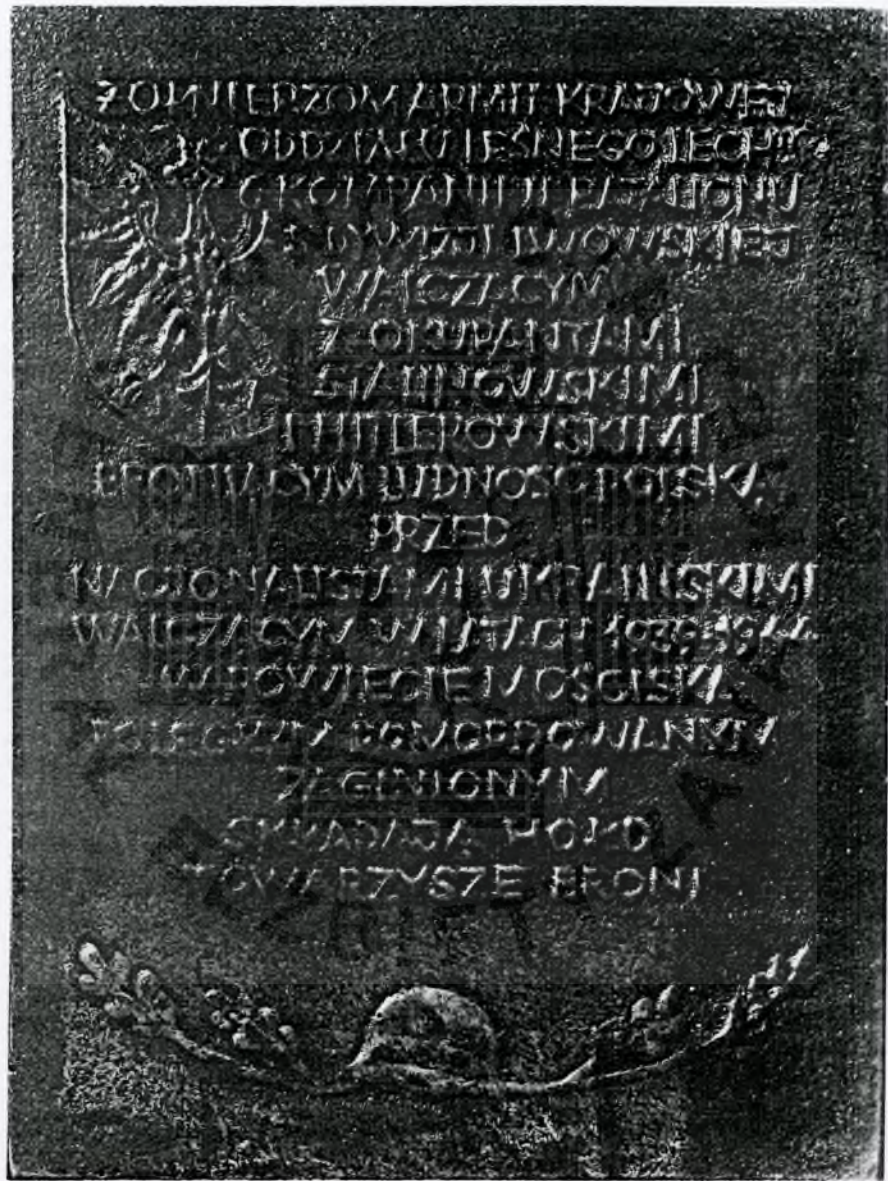 ŻOŁNIERZOM ARMII KRAJOWEJ
ODDZIAŁU LEŚNEGO LECHII
KOMPANII BATALIONU
DYWIZJI LWOWSKIEJ
WALCZĄCYM
Z OKUPANTAMI
STALINOWSKIMI
I HITLEROWSKIMI
BRONIĄCYM LUDNOŚĆ POLSKĄ
PRZED
NACJONALISTAMI UKRAIŃSKIMI
WALCZĄCYM W LATACH 1939-1944
W POWIECIE MOŚCISKA
POLEGŁYM POMORDOWANYM
ZAGINIONYM
SKŁADAJĄ HOŁD
TOWARZYSZE BRONI